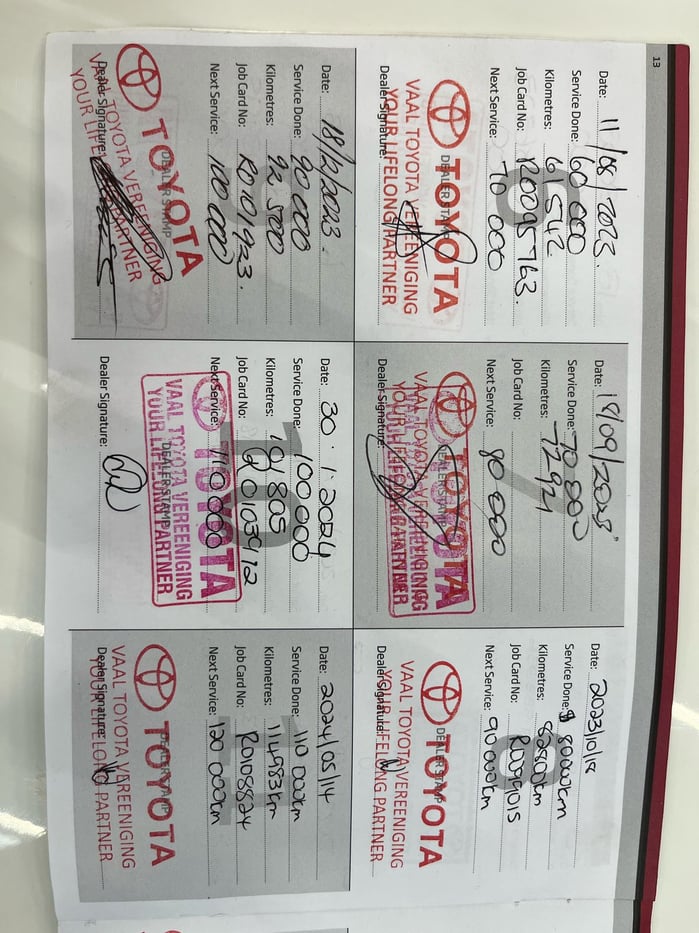 13
6
Date: 11/08/2023.
Service Done: 60 000
Kilometres: 61 542
Job Card No: R0095763.
Next Service: 70 000
DEALER STAMP
TOYOTA
VAAL TOYOTA VEREENIGING
YOUR LIFELONG PARTNER
Dealer Signature:
7
Date: 18/09/2023
Service Done: 70 000
Kilometres: 72921
Job Card No:
Next Service: 80 000
DEALER STAMP
TOYOTA
VAAL TOYOTA VEREENIGING
YOUR LIFELONG PARTNER
Dealer Signature:
8
Date: 2023/10/18
Service Done: 80000km
Kilometres: 82800km
Job Card No: R0099015
Next Service: 90 000km
DEALER STAMP
TOYOTA
VAAL TOYOTA VEREENIGING
YOUR LIFELONG PARTNER
Dealer Signature:
9
Date: 18/12/2023.
Service Done: 90 000
Kilometres: 92 500
Job Card No: R0101923.
Next Service: 100 000
DEALER STAMP
TOYOTA
VAAL TOYOTA VEREENIGING
YOUR LIFELONG PARTNER
Dealer Signature:
10
Date: 30.1.2024
Service Done: 100 000
Kilometres: 101 805
Job Card No: R0103912
Next Service: 110 000
DEALER STAMP
TOYOTA
VAAL TOYOTA VEREENIGING
YOUR LIFELONG PARTNER
Dealer Signature:
11
Date: 2024/05/14
Service Done: 110 000km
Kilometres: 114983km
Job Card No: R0108824
Next Service: 120 000km
DEALER STAMP
TOYOTA
VAAL TOYOTA VEREENIGING
YOUR LIFELONG PARTNER
Dealer Signature: